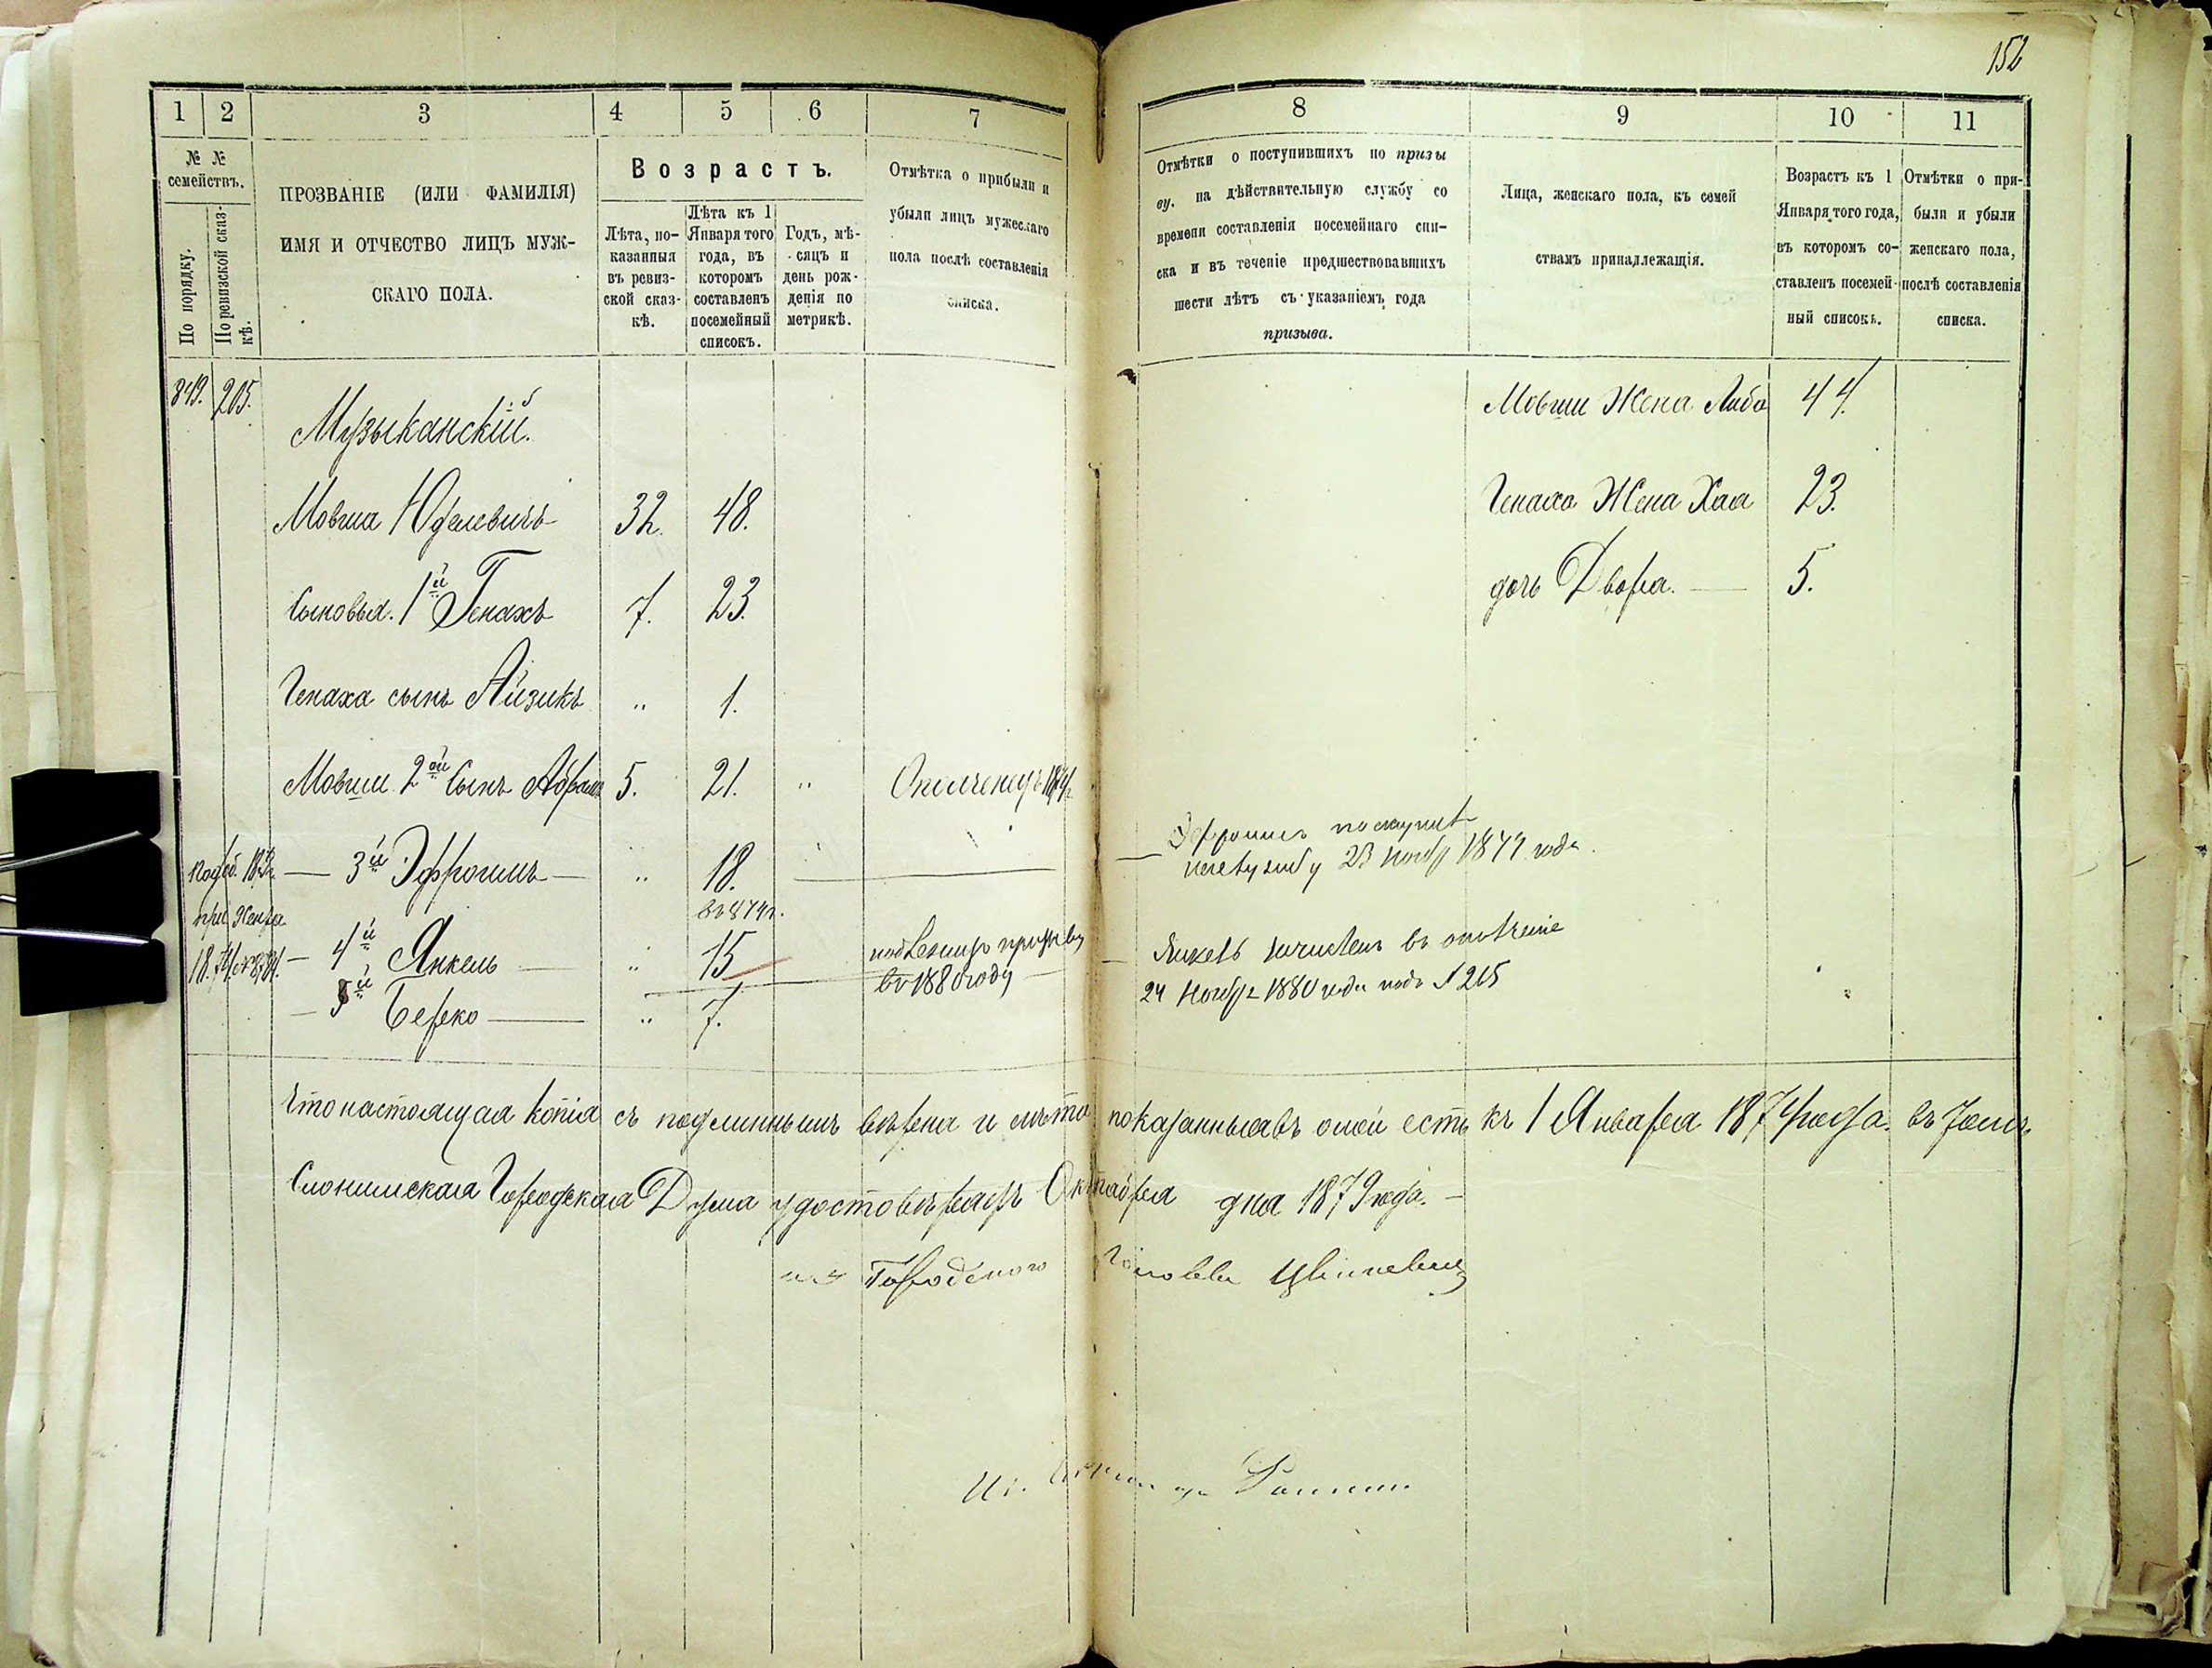 152
1 2 3 4 5 6 7 8 9 10 11
№ № семействъ.
По порядку.
По ревизской сказ-
кѣ.
ПРОЗВАНІЕ (ИЛИ ФАМИЛІЯ)
ИМЯ И ОТЧЕСТВО ЛИЦЪ МУЖ-
СКАГО ПОЛА.
Возрастъ.
Лѣта, по-
казанныя
въ ревиз-
ской сказ-
кѣ.
Лѣта къ 1
Января того
года, въ
которомъ
составленъ
посемейный
списокъ.
Годъ, мѣ-
сяцъ и
день рож-
денія по
метрикѣ.
Отмѣтка о прибыли и
убыли лицъ мужескаго
пола послѣ составленія
списка.
Отмѣтки о поступившихъ по призы
ву. на дѣйствительную службу со
времени составленія посемейнаго спи-
ска и въ теченіе предшествовавшихъ
шести лѣтъ съ указаніемъ года
призыва.
Лица, женскаго пола, къ семей
ствамъ принадлежащія.
Возрастъ къ 1
Января того года,
въ которомъ со-
ставленъ посемей-
ный списокъ.
Отмѣтки о при-
были и убыли
женскаго пола,
послѣ составленія
списка.
849. 205.
Музыканскій.
Мовша Юделевичъ 32. 48.
Сыновья. 1й Генахъ 7. 23.
Генаха сынъ Айзикъ " 1.
Мовши 2ой Сынъ Абрамъ 5. 21. " Ополченецъ 1874г.
— 3й Эфроимъ — " 18.
въ 874г.
— 4й Янкель — " 15
подлежитъ призыву
въ 1880 году —
— 5й Берко — " 7.
Мовши Жена Либа 44.
Генаха Жена Хая 23.
дочь Двора. — 5.
— Эфроимъ поступилъ
23 Нояб 1877 года.
— Янкель зачисленъ въ ополченіе
24 Ноября 1880 года подъ № 215
Что настоящая копія съ подлиннымъ вѣрна и лѣта показанныя въ оной есть къ 1 Января 1874 года. въ томъ
Слонимская Городская Дума удостовѣряетъ Октября дня 1879 года. —
Городского Головы